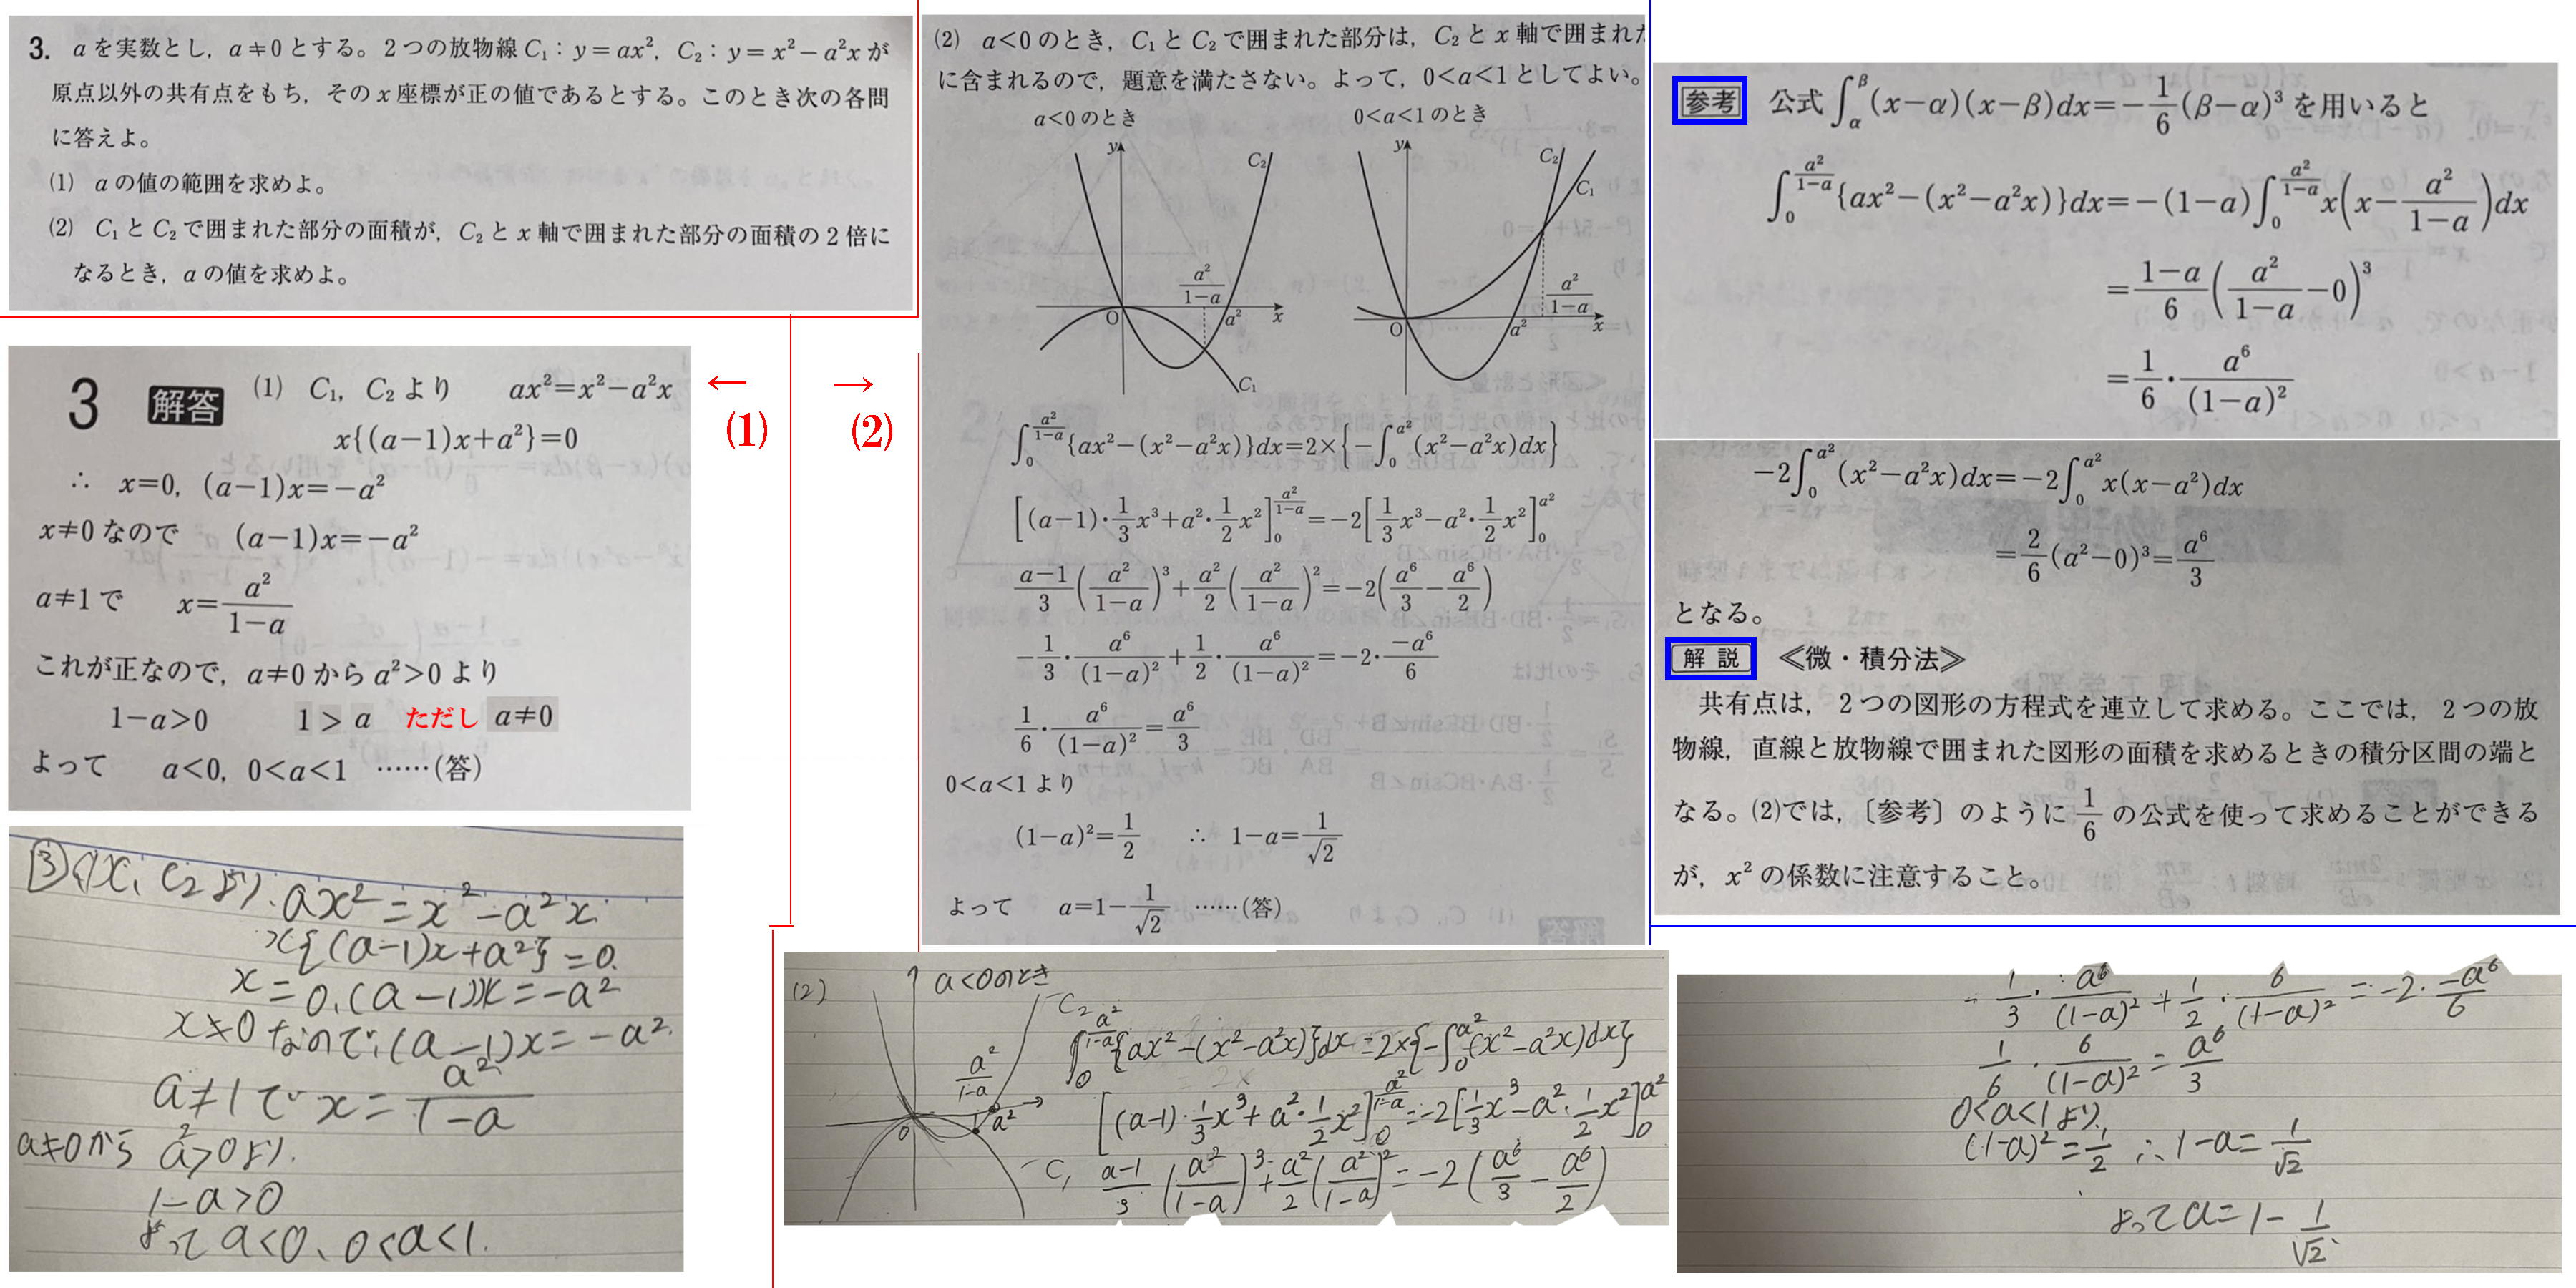 3. aを実数とし，a≠0とする。2つの放物線C₁：y=ax²，C₂：y=x²−a²xが
原点以外の共有点をもち，そのx座標が正の値であるとする。このとき次の各問
に答えよ。
(1) aの値の範囲を求めよ。
(2) C₁とC₂で囲まれた部分の面積が，C₂とx軸で囲まれた部分の面積の2倍に
なるとき，aの値を求めよ。
3 解答 (1) C₁，C₂より ax²=x²−a²x
x{(a−1)x+a²}=0
∴ x=0，(a−1)x=−a²
x≠0なので (a−1)x=−a²
a≠1で x=a²/(1−a)
これが正なので，a≠0からa²>0より
1−a>0 1>a ただし a≠0
よって a<0，0<a<1 ……(答)
← (1)
→ (2)
③(1)C₁ C₂より. ax²=x²−a²x
x{(a−1)x+a²}=0.
x=0.(a−1)x=−a²
x≠0なので,(a−1)x=−a².
a≠1で x=a²/(1−a)
a≠0から a²>0より.
1−a>0
よって a<0、0<a<1.
(2) a<0のとき，C₁とC₂で囲まれた部分は，C₂とx軸で囲まれた
に含まれるので，題意を満たさない。よって，0<a<1としてよい。
a<0のとき 0<a<1のとき
y C₂ a²/(1−a) O a² x C₁
y C₂ C₁ a²/(1−a) O a² x
∫₀^{a²/(1−a)}{ax²−(x²−a²x)}dx=2×{−∫₀^{a²}(x²−a²x)dx}
[(a−1)·1/3x³+a²·1/2x²]₀^{a²/(1−a)}=−2[1/3x³−a²·1/2x²]₀^{a²}
(a−1)/3(a²/(1−a))³+a²/2(a²/(1−a))²=−2(a⁶/3−a⁶/2)
−1/3·a⁶/(1−a)²+1/2·a⁶/(1−a)²=−2·−a⁶/6
1/6·a⁶/(1−a)²=a⁶/3
0<a<1より
(1−a)²=1/2 ∴ 1−a=1/√2
よって a=1−1/√2 ……(答)
(2) a<0のとき
C₂ a²/(1−a) 0 a² C₁
∫₀^{a²/(1−a)}{ax²−(x²−a²x)}dx=2×{−∫₀^{a²}(x²−a²x)dx}
[(a−1)·1/3x³+a²·1/2x²]₀^{a²/(1−a)}=−2[1/3x³−a²·1/2x²]₀^{a²}
(a−1)/3(a²/(1−a))³+a²/2(a²/(1−a))²=−2(a⁶/3−a⁶/2)
参考 公式∫_α^β(x−α)(x−β)dx=−1/6(β−α)³を用いると
∫₀^{a²/(1−a)}{ax²−(x²−a²x)}dx=−(1−a)∫₀^{a²/(1−a)}x(x−a²/(1−a))dx
=(1−a)/6(a²/(1−a)−0)³
=1/6·a⁶/(1−a)²
−2∫₀^{a²}(x²−a²x)dx=−2∫₀^{a²}x(x−a²)dx
=2/6(a²−0)³=a⁶/3
となる。
解説 ≪微・積分法≫
共有点は，2つの図形の方程式を連立して求める。ここでは，2つの放
物線，直線と放物線で囲まれた図形の面積を求めるときの積分区間の端と
なる。(2)では，〔参考〕のように1/6の公式を使って求めることができる
が，x²の係数に注意すること。
−1/3·a⁶/(1−a)²+1/2·6/(1−a)²=−2·−a⁶/6
1/6·6/(1−a)²=a⁶/3
0<a<1より.
(1−a)²=1/2 ∴1−a=1/√2
よってa=1−1/√2.